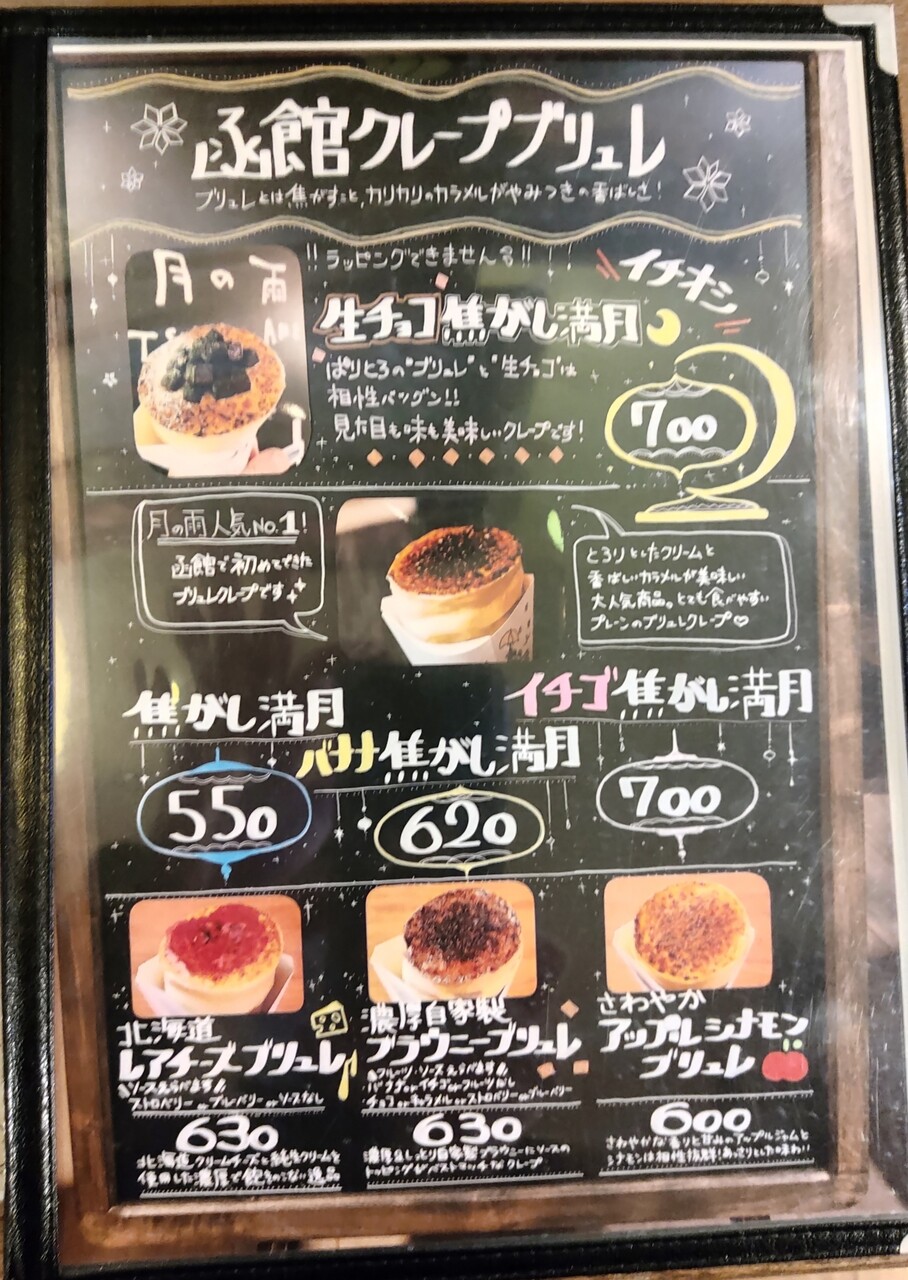 函館クレープブリュレ
ブリュレとは、焦がすこと、カリカリのカラメルがやみつきの香ばしさ!
月の雨
!!ラッピングできません!!
イチオシ
生チョコ焦がし満月
ぱりとろの"ブリュレ"と"生チョコ"は
相性バツグン!!
見た目も味も美味しいクレープです!
700
月の雨人気No.1!
函館で初めてできた
ブリュレクレープです
とろりとしたクリームと
香ばしいカラメルが美味しい
大人気商品。とても食べやすい
プレーンのブリュレクレープ♡
焦がし満月
550
バナナ焦がし満月
620
イチゴ焦がし満月
700
北海道
レアチーズブリュレ
ソースえらべます!!
ストロベリー or ブルーベリー or ソースなし
630
北海道クリームチーズと純生クリームを
使用した濃厚で飽きのこない逸品
濃厚自家製
ブラウニーブリュレ
フルーツ・ソースえらべます!!
バナナ or イチゴ or フルーツなし
チョコ or キャラメル or ストロベリー or ブルーベリー
630
濃厚なしっとり自家製ブラウニーにソースの
トッピングがベストマッチなクレープ
さわやか
アップルシナモン
ブリュレ
600
さわやかな香りと甘みのアップルジャムと
シナモンは相性抜群!あっさりとした味わい